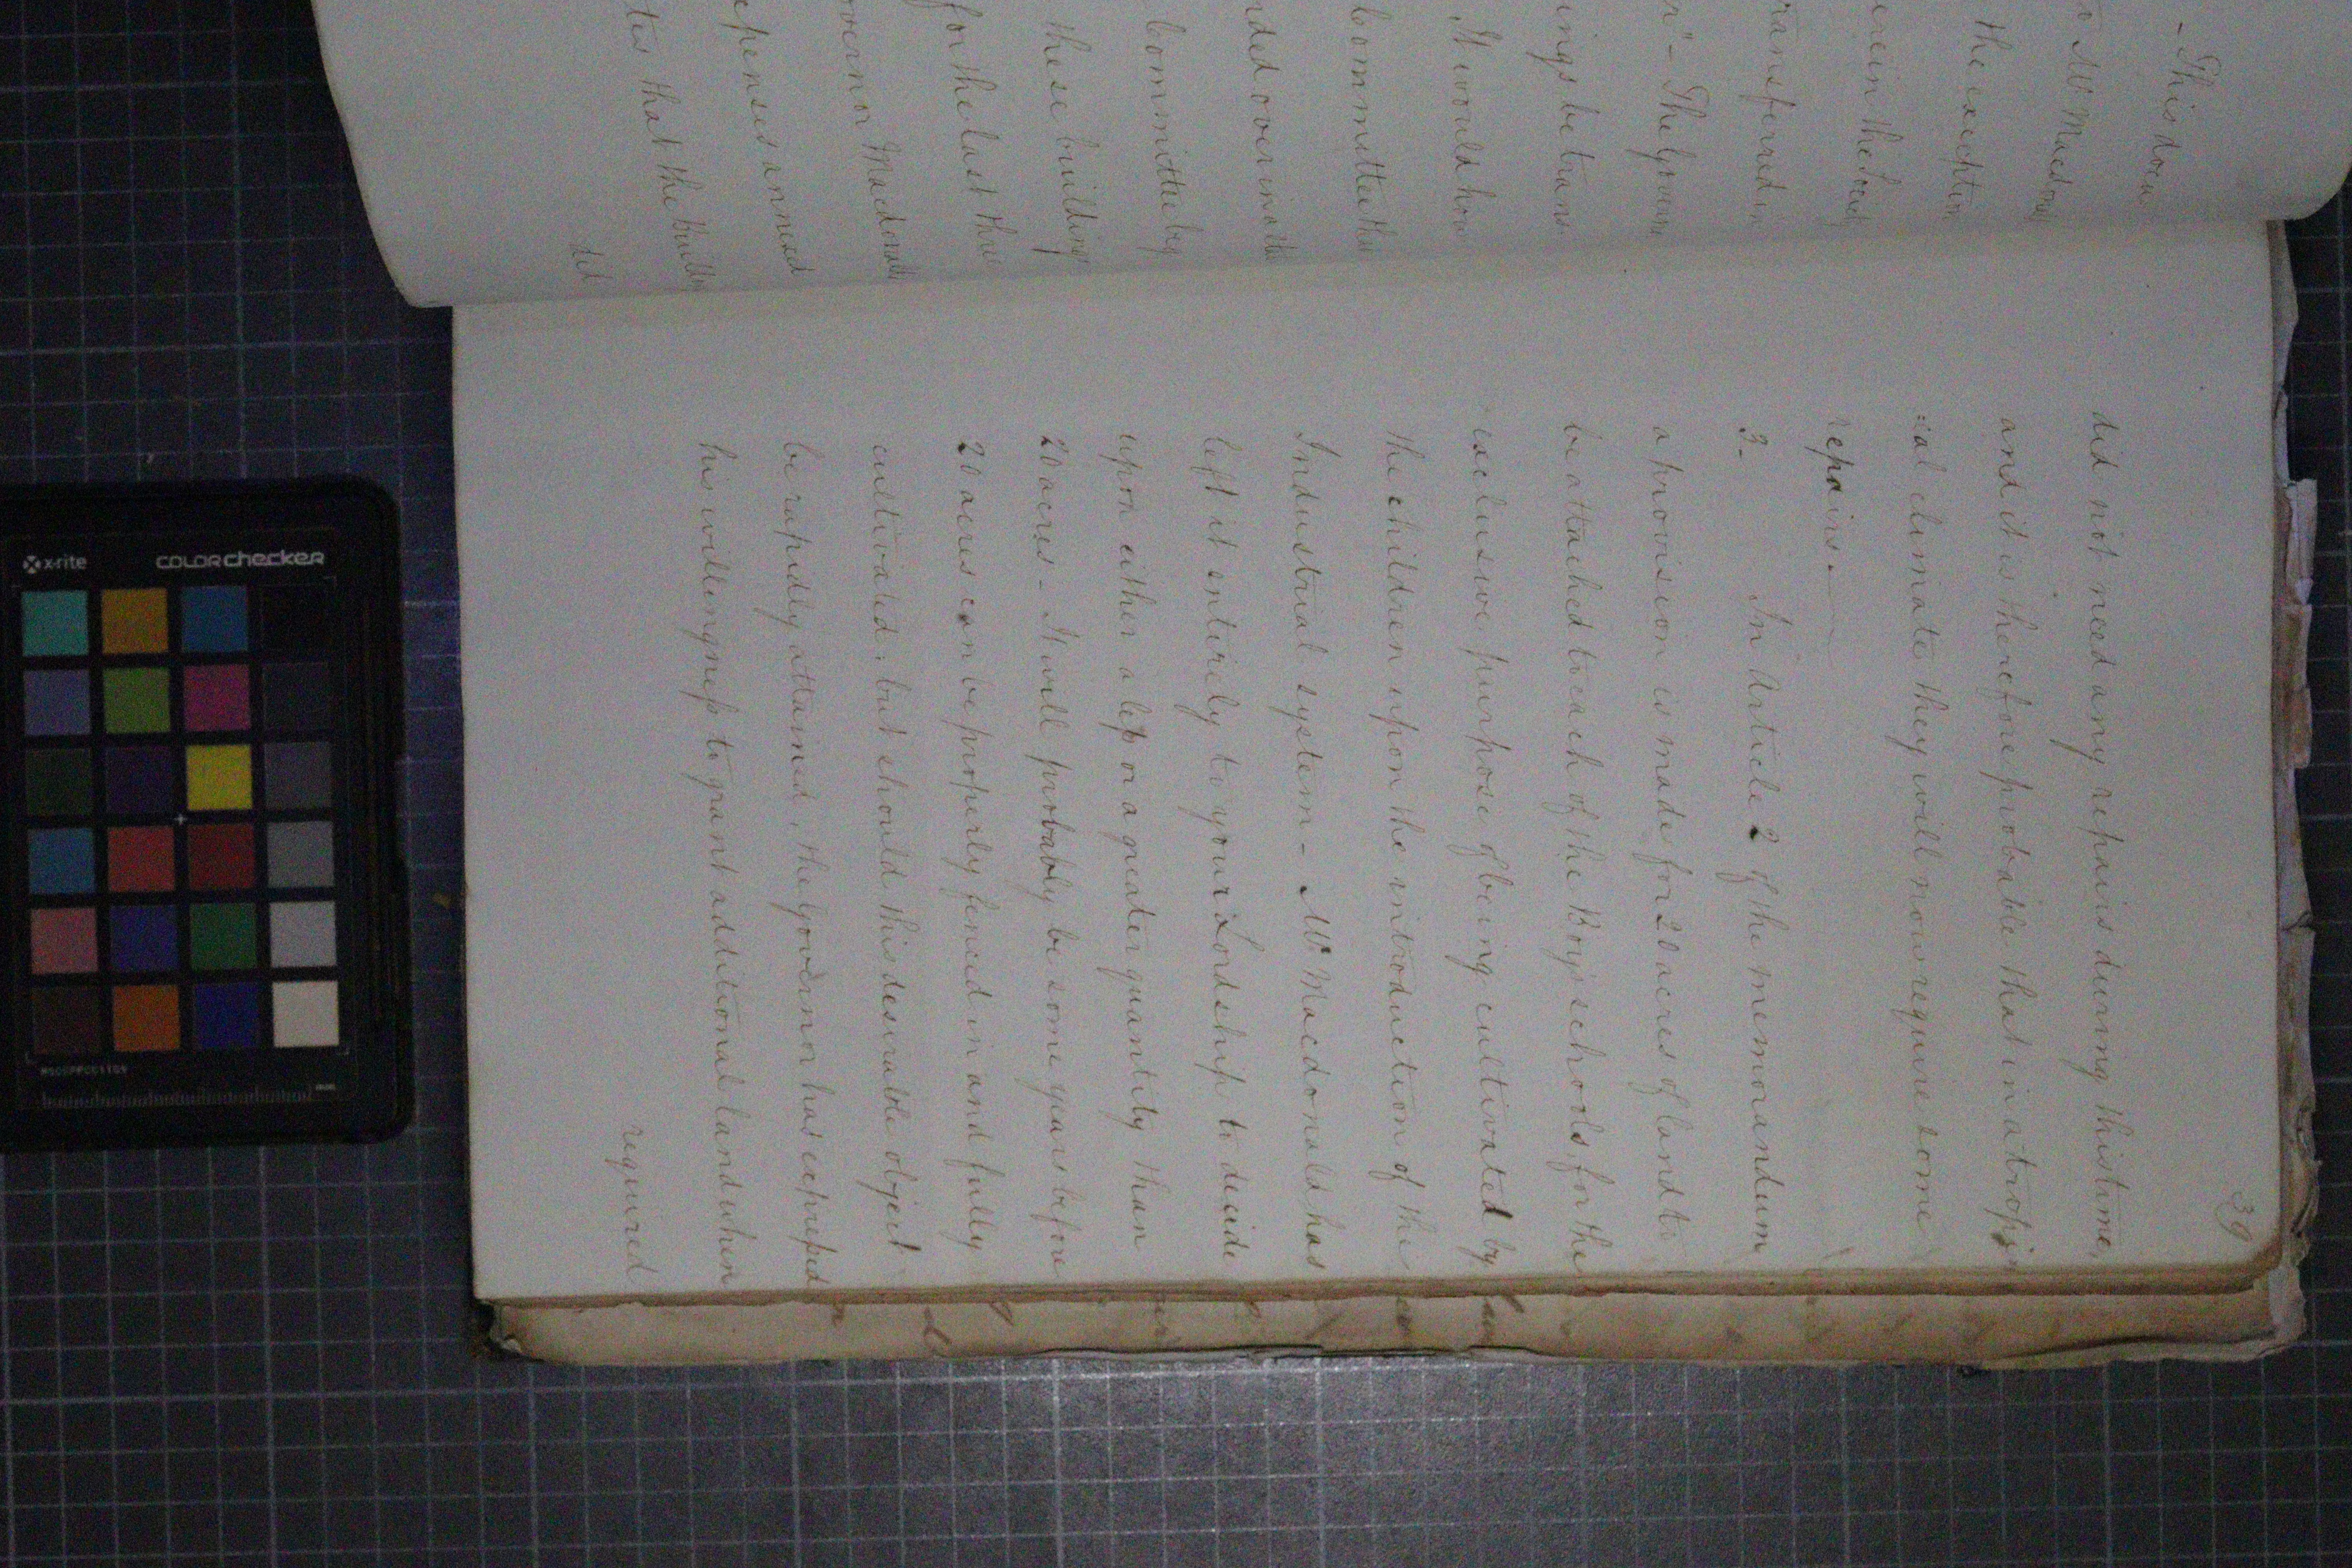 - This docu
Mr Macdonal
the exception
erein the
ransferred in
r" - The Govern
ings be trans
It would
Committee
nded over in
Committee
these building
for the last
overnor Macdonald
expenses
tes that the
39
did not need any repairs during this time,
and it is therefore probable that in a tropi
=cal climate they will now require some
repairs. —
3- In Article 2 of the memorandum
a provision is made for 20 acres of land to
be attached to each of the Boys schools, for the
exclusive purpose of being cultivated by
the children upon the introduction of the
Industrial system - Mr Macdonald has
left it entirely to your Lordship to decide
upon either a less or a greater quantity than
20 acres - It will probably be some years before
20 acres can be properly fenced in and fully
cultivated; but should this desirable object
be rapidly attained, the Governor has expressed
his willingness to grant additional land when
required
x-rite colorchecker